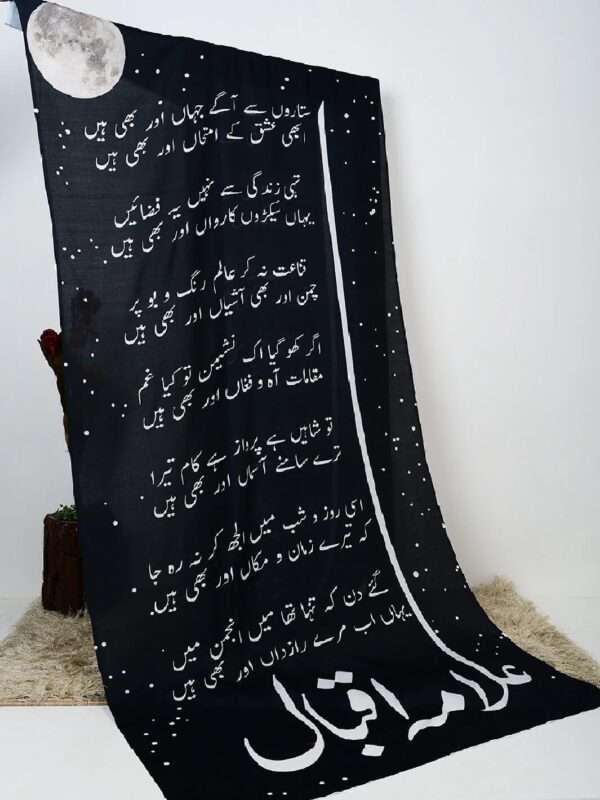 ستاروں سے آگے جہاں اور بھی ہیں
ابھی عشق کے امتحاں اور بھی ہیں
تہی زندگی سے نہیں یہ فضائیں
یہاں سیکڑوں کارواں اور بھی ہیں
قناعت نہ کر عالم رنگ و بو پر
چمن اور بھی آشیاں اور بھی ہیں
اگر کھو گیا اک نشیمن تو کیا غم
مقامات آہ و فغاں اور بھی ہیں
تو شاہیں ہے پرواز ہے کام تیرا
ترے سامنے آسماں اور بھی ہیں
اسی روز و شب میں الجھ کر نہ رہ جا
کہ تیرے زمان و مکاں اور بھی ہیں
گئے دن کہ تنہا تھا میں انجمن میں
یہاں اب مرے رازداں اور بھی ہیں
علامہ اقبال